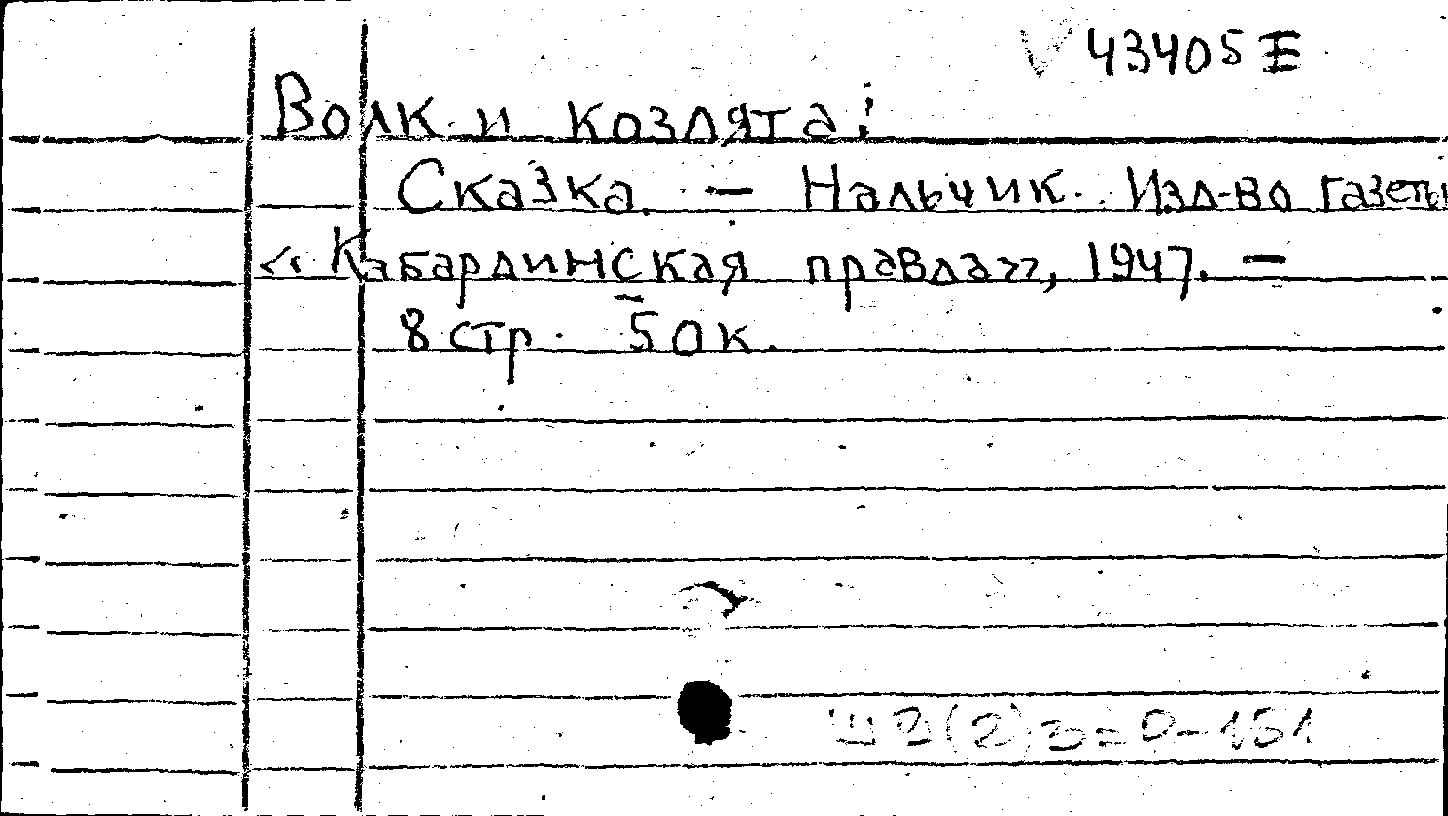 V 43405 Е
Волк и козлята:
Сказка. — Нальчик. Изд-во газеты
«Кабардинская правда», 1947. —
8 стр. 50 к.